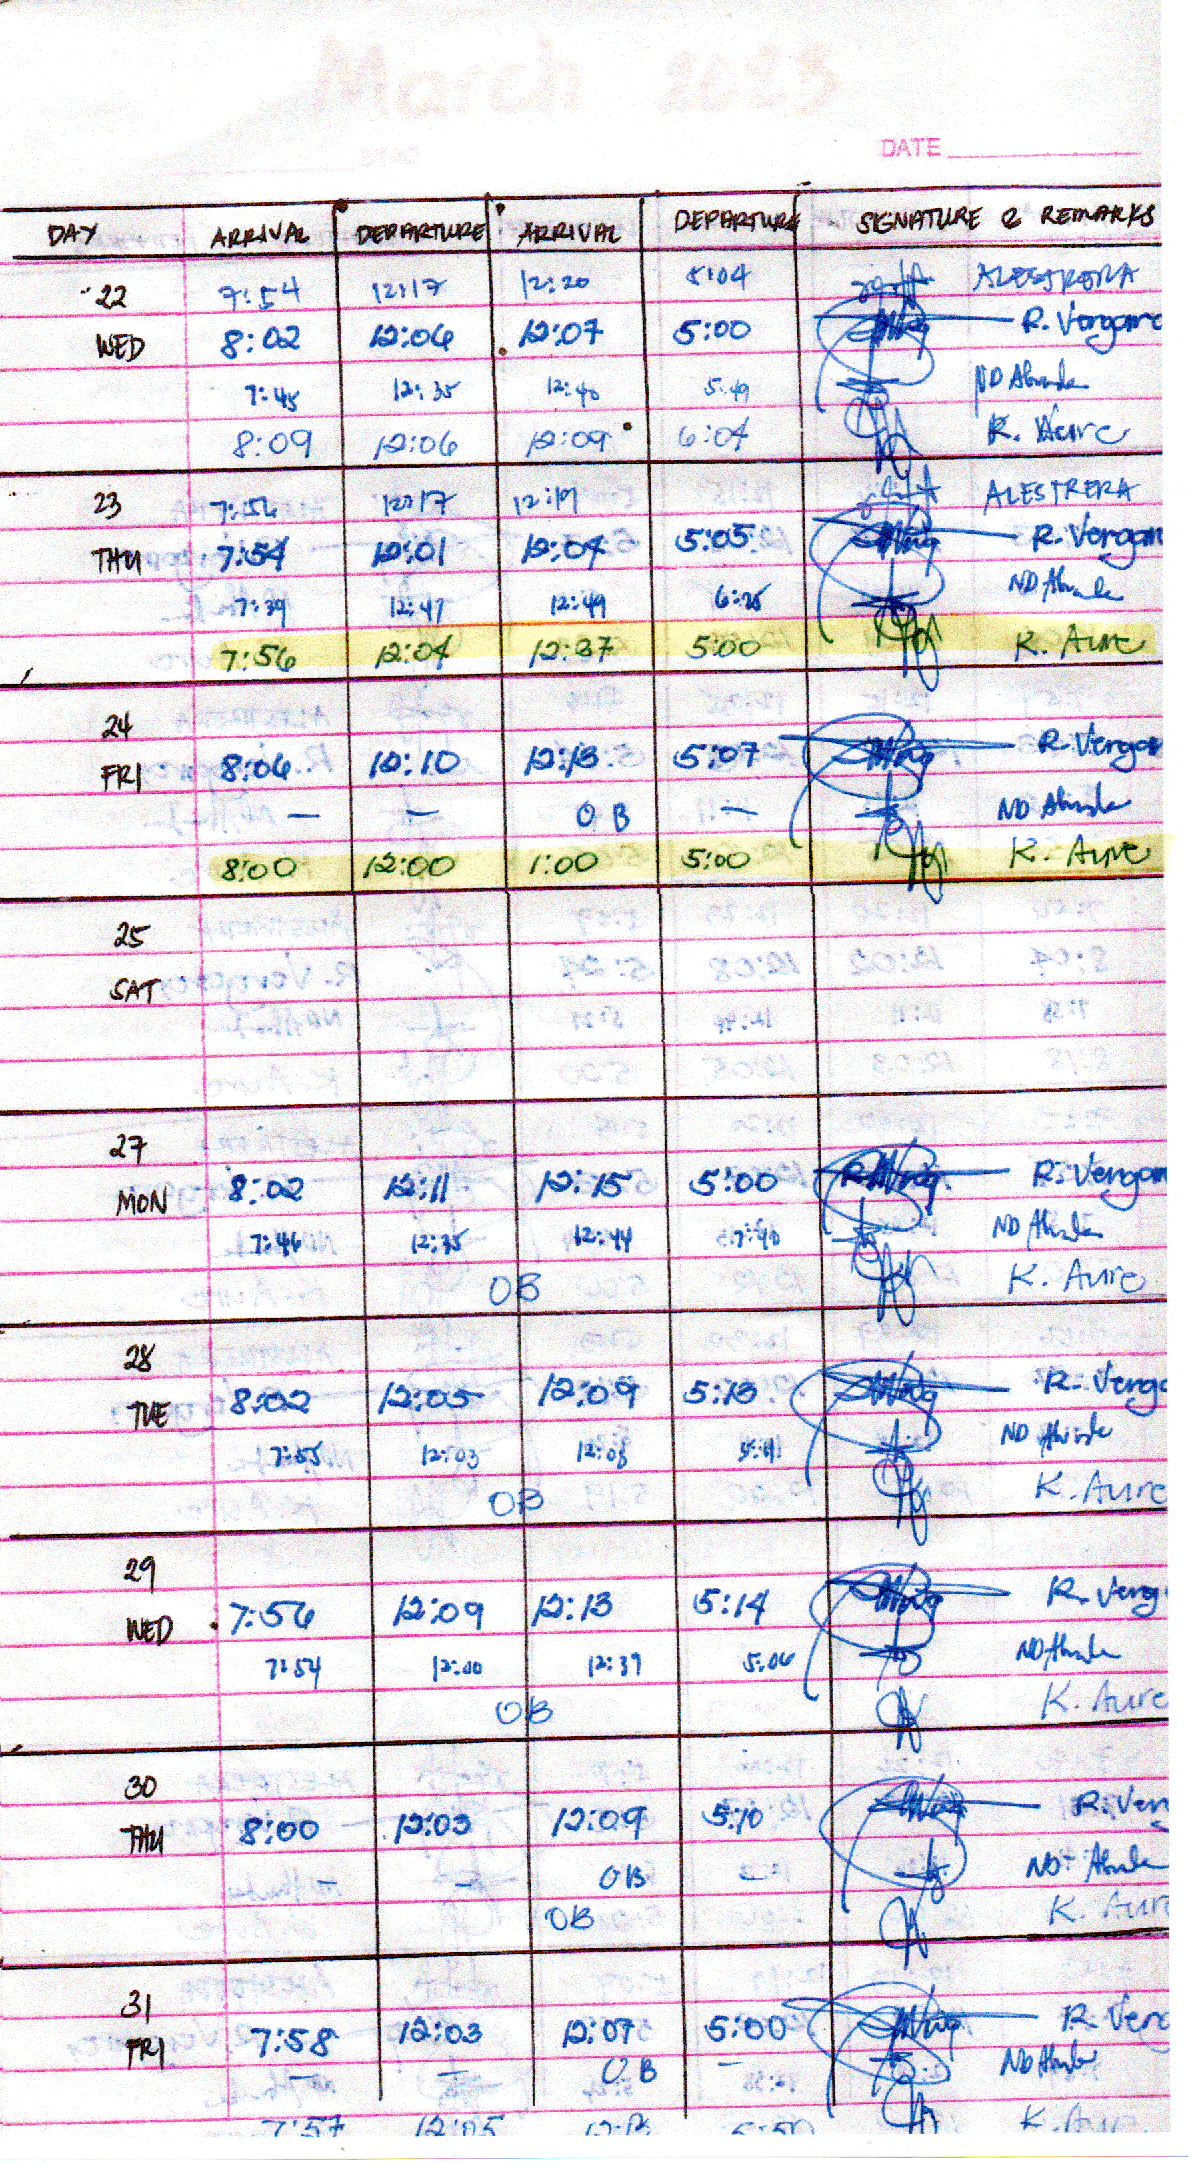 March 2023
DATE
DAY ARRIVAL DEPARTURE ARRIVAL DEPARTURE SIGNATURE & REMARKS
22 7:54 12:17 12:20 5:04 ALESTRERA
WED 8:02 12:06 12:07 5:00 R. Vergara
7:45 12:35 12:40 5:49 ND
8:09 12:06 12:09 6:04 K. Aure
23 7:56 12:17 12:19 ALESTRERA
THU 7:54 12:01 12:04 5:05 R. Vergar
7:39 12:47 12:49 6:25 ND
7:56 12:04 12:37 5:00 K. Aure
24
FRI 8:06 12:10 12:13 5:07 R. Vergar
— — OB — ND
8:00 12:00 1:00 5:00 K. Aure
25
SAT
27
MON 8:02 12:11 12:15 5:00 R. Vergar
7:46 12:35 12:44 5:40 ND
OB K. Aure
28
TUE 8:02 12:05 12:09 5:13 R. Verga
7:55 12:03 12:08 5:41 ND
OB K. Aure
29
WED 7:56 12:09 12:13 5:14 R. Verg
7:54 12:00 12:39 5:06 ND
OB K. Aure
30
THU 8:00 12:03 12:09 5:10 R. Ver
— — OB — ND
OB K. Aure
31
FRI 7:58 12:03 12:07 5:00 R. Verg
— — OB — ND
7:57 12:05 12:13 5:50 K. Aure